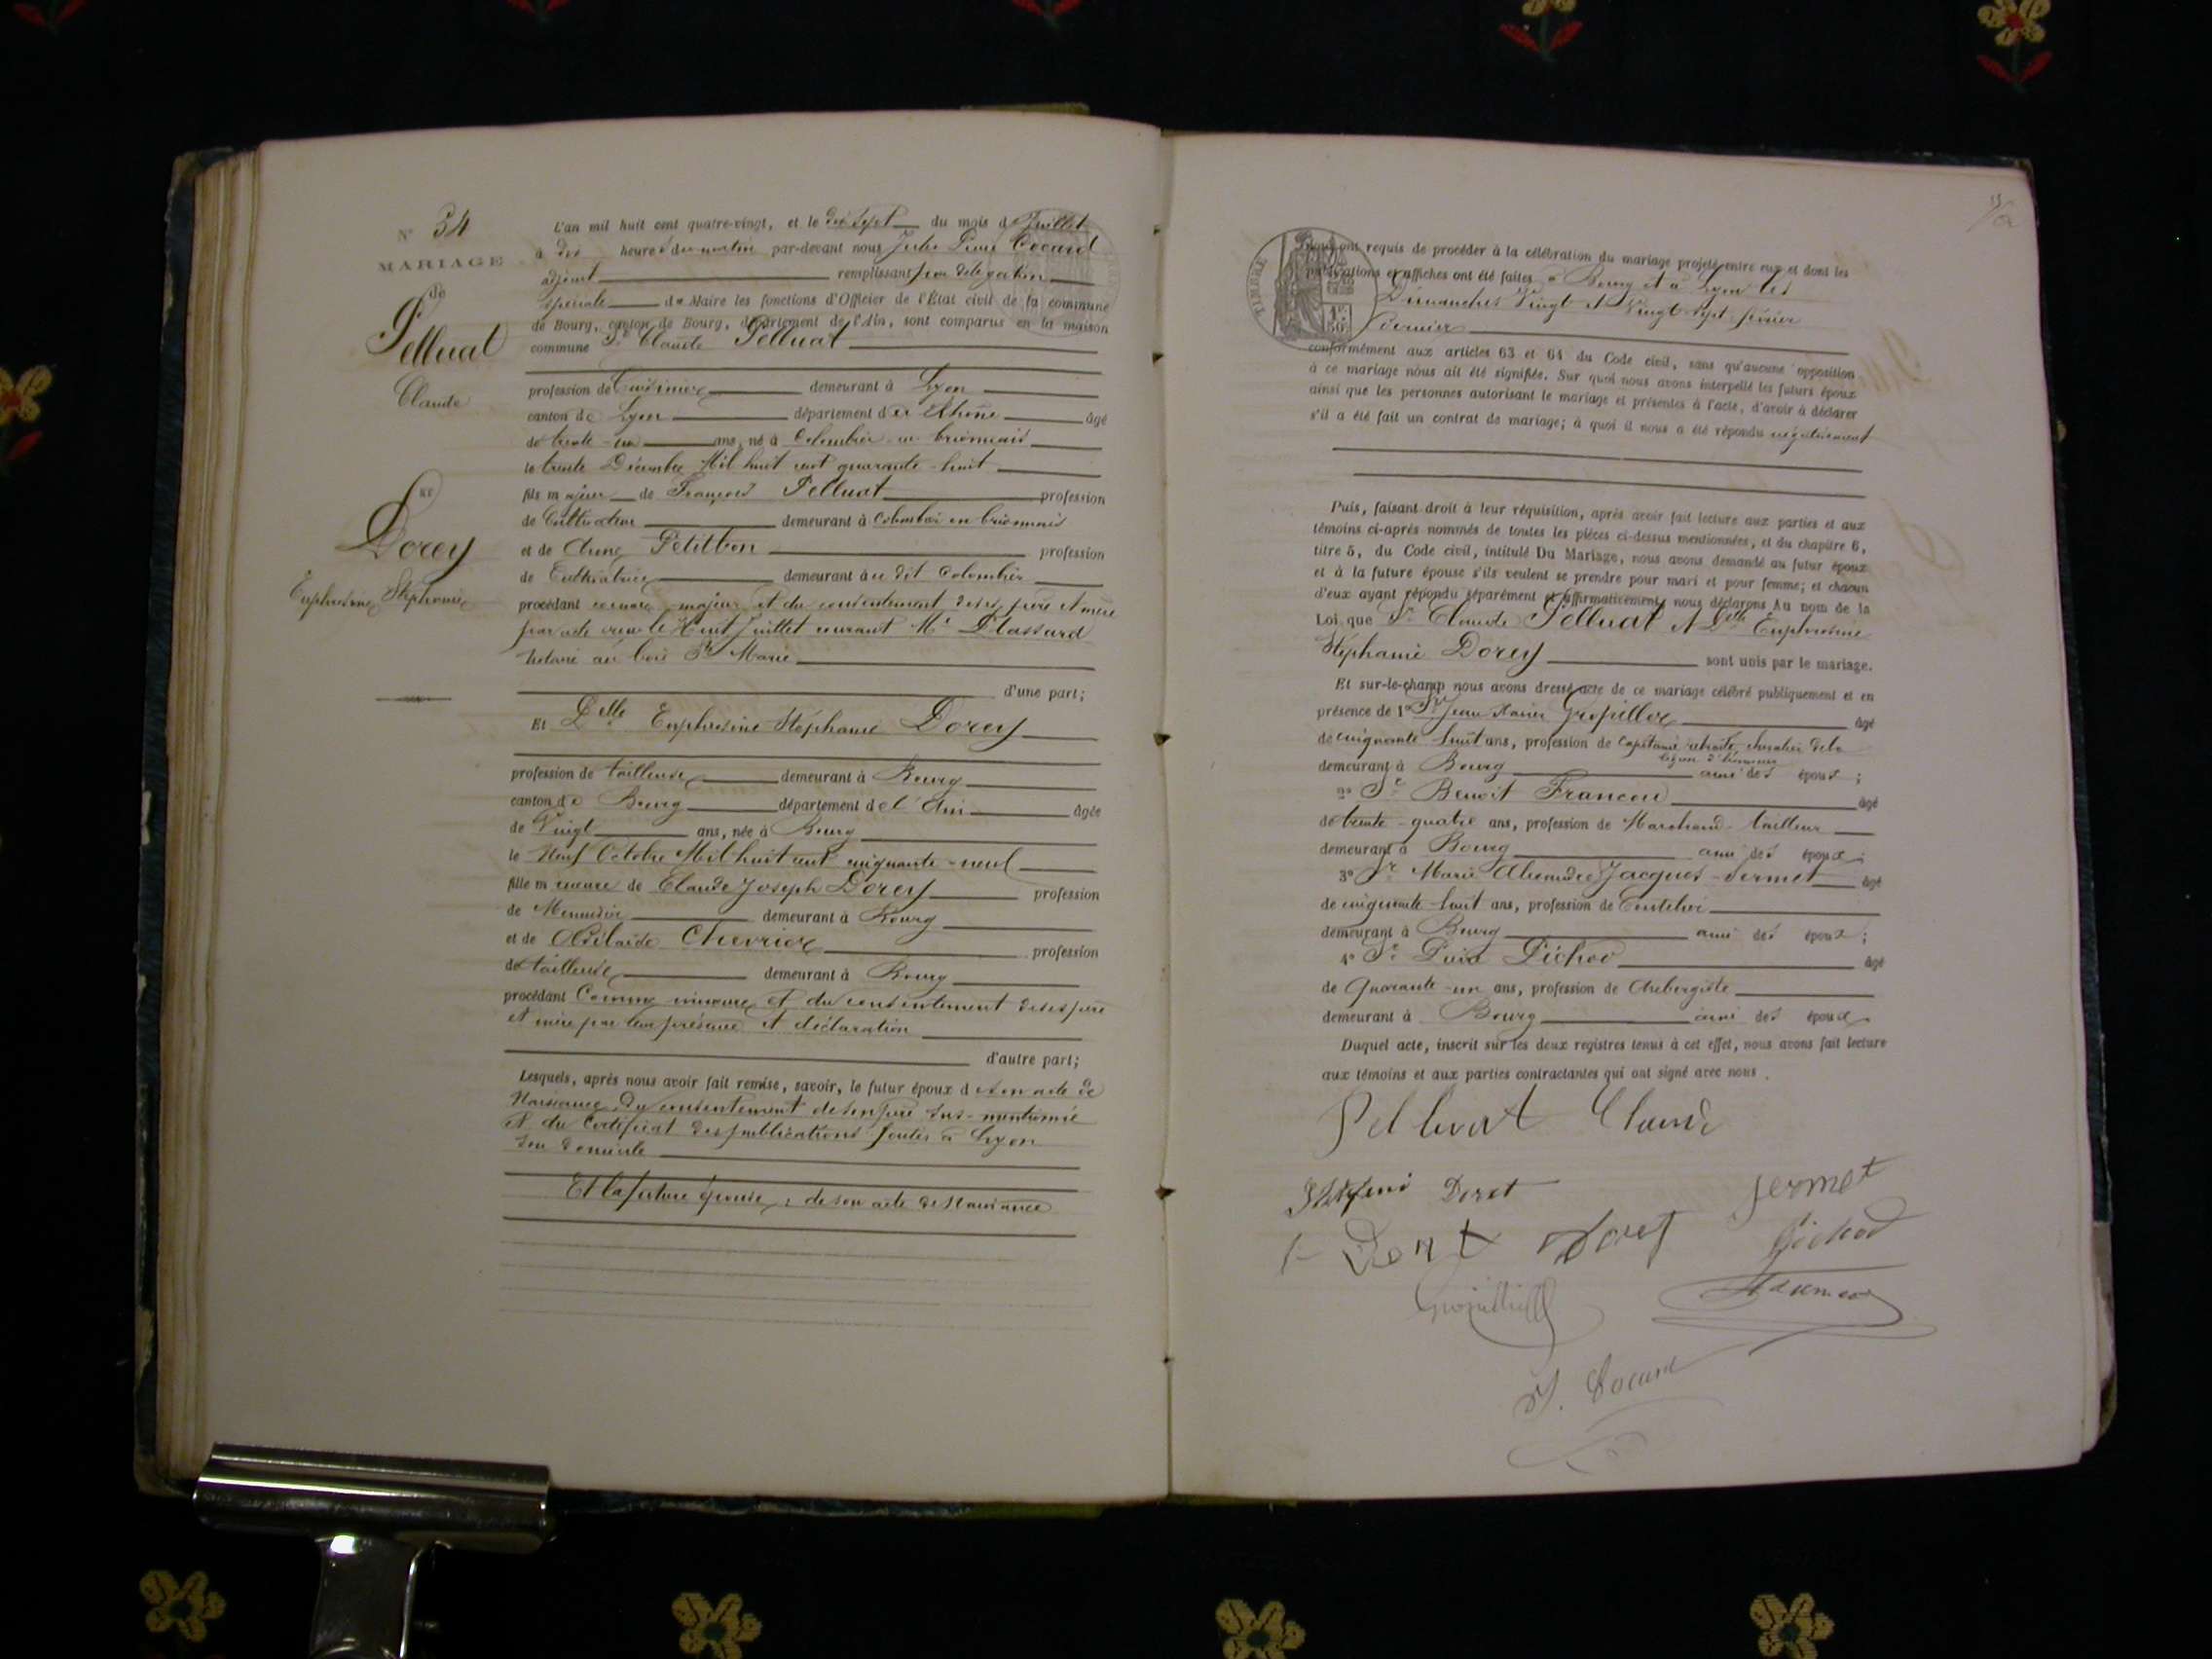 N° 34
MARIAGE
de
Pelluat
Claude
ET
Dorey
Euphrosine Stéphanie
L'an mil huit cent quatre-vingt, et le dix sept du mois de Juillet
à dix heures du matin par-devant nous Jules Pierre Cocard
adjoint remplissant par délégation
spéciale de Maire les fonctions d'Officier de l'État civil de la commune
de Bourg, canton de Bourg, département de l'Ain, sont comparus en la maison
commune Sr Claude Pelluat
profession de Cuisinier demeurant à Lyon
canton de Lyon département du Rhône âgé
de trente-un ans, né à Colombier en brionnais
le trente Décembre Mil huit cent quarante-huit
fils majeur de François Pelluat profession
de Cultivateur demeurant à Colombier en brionnais
et de Petitbon profession
de Cultivatrice demeurant au dit Colombier
procédant comme majeur et du consentement de ses père et mère
par acte reçu le Huit Juillet courant Me Plassard
Notaire au bois Ste Marie
d'une part;
Et Delle Euphrosine Stéphanie Dorey
profession de tailleuse demeurant à Bourg
canton de Bourg département de l'Ain âgée
de Vingt ans, née à Bourg
le Neuf Octobre Mil huit cent cinquante-neuf
fille mineure de Claude Joseph Dorey profession
de Menuisier demeurant à Bourg
et de Adélaïde Chevrier profession
de tailleuse demeurant à Bourg
procédant Comme mineure et du consentement de ses père
et mère par leur présence et déclaration
d'autre part;
Lesquels, après nous avoir fait remise, savoir, le futur époux de son acte de
Naissance, du consentement de son père sus-mentionné
et du Certificat des publications faites à Lyon
son domicile
Et la future épouse, : de son acte de Naissance
TIMBRE
Nous ont requis de procéder à la célébration du mariage projeté entre eux et dont les
publications et affiches ont été faites à Bourg et à Lyon les
Dimanches Vingt et Vingt sept février
dernier
conformément aux articles 63 et 64 du Code civil, sans qu'aucune opposition
à ce mariage nous ait été signifiée. Sur quoi nous avons interpellé les futurs époux
ainsi que les personnes autorisant le mariage et présentes à l'acte, d'avoir à déclarer
s'il a été fait un contrat de mariage; à quoi il nous a été répondu négativement
Puis, faisant droit à leur réquisition, après avoir fait lecture aux parties et aux
témoins ci-après nommés de toutes les pièces ci-dessus mentionnées, et du chapitre 6,
titre 5, du Code civil, intitulé Du Mariage, nous avons demandé au futur époux
et à la future épouse s'ils veulent se prendre pour mari et pour femme; et chacun
d'eux ayant répondu séparément et affirmativement, nous déclarons Au nom de la
Loi, que Sr Claude Pelluat et Delle Euphrosine
Stéphanie Dorey sont unis par le mariage.
Et sur-le-champ nous avons dressé acte de ce mariage célébré publiquement et en
présence de 1° Sr Jean Xavier âgé
de cinquante huit ans, profession de Capitaine retraité, chevalier de la
légion d'honneur
demeurant à Bourg ami des époux;
2° Sr Benoit Francou âgé
de trente-quatre ans, profession de Marchand tailleur
demeurant à Bourg ami des époux;
3° Sr Marie Alexandre Jacques-Vermet âgé
de cinquante-huit ans, profession de Coutelier
demeurant à Bourg ami des époux;
4° Sr Pichod âgé
de Quarante-un ans, profession de Aubergiste
demeurant à Bourg ami des époux
Duquel acte, inscrit sur les deux registres tenus à cet effet, nous avons fait lecture
aux témoins et aux parties contractantes qui ont signé avec nous.
Pelluat Claude
Doret
Jermet
Doret
Pichod
J. Cocard